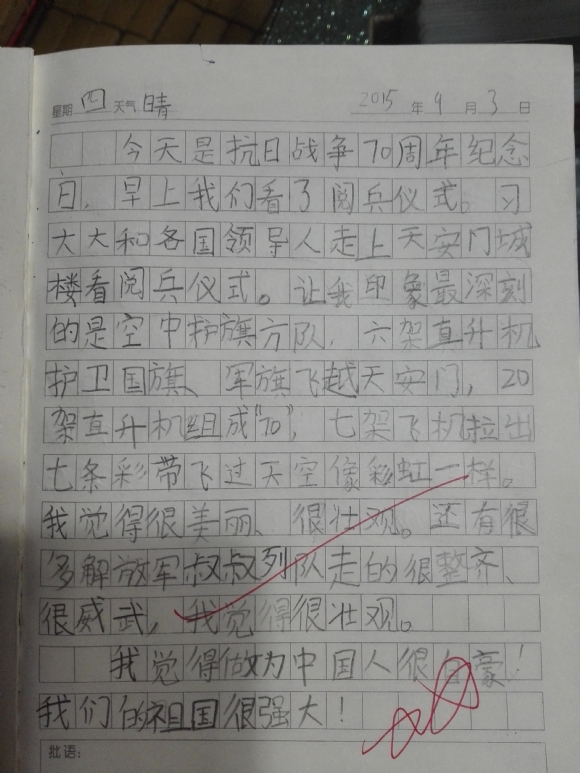 星期 四 天气 晴 2015 年 9 月 3 日
今天是抗日战争70周年纪念
日，早上我们看了阅兵仪式。习
大大和各国领导人走上天安门城
楼看阅兵仪式。让我印象最深刻
的是空中护旗方队，六架直升机
护卫国旗、军旗飞越天安门，20
架直升机组成“70”，七架飞机拉出
七条彩带飞过天空像彩虹一样。
我觉得很美丽、很壮观。还有很
多解放军叔叔列队走的很整齐、
很威武，我觉得很壮观。
我觉得做为中国人很自豪！
我们的祖国很强大！
批语：